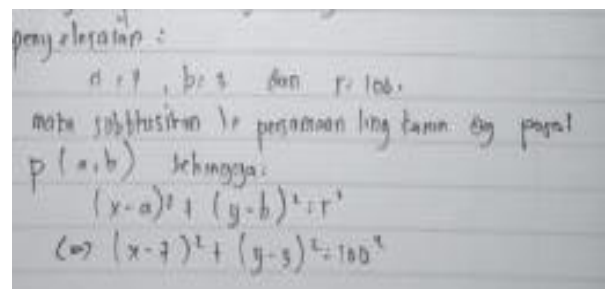 penyelesaian :
a = 7 , b = 3 dan r = 100.
maka subtitusikan ke persamaan lingkaran dg pusat
p (a, b) sehingga:
(x-a)² + (y-b)² = r²
(⇔) (x-7)² + (y-3)² = 100²